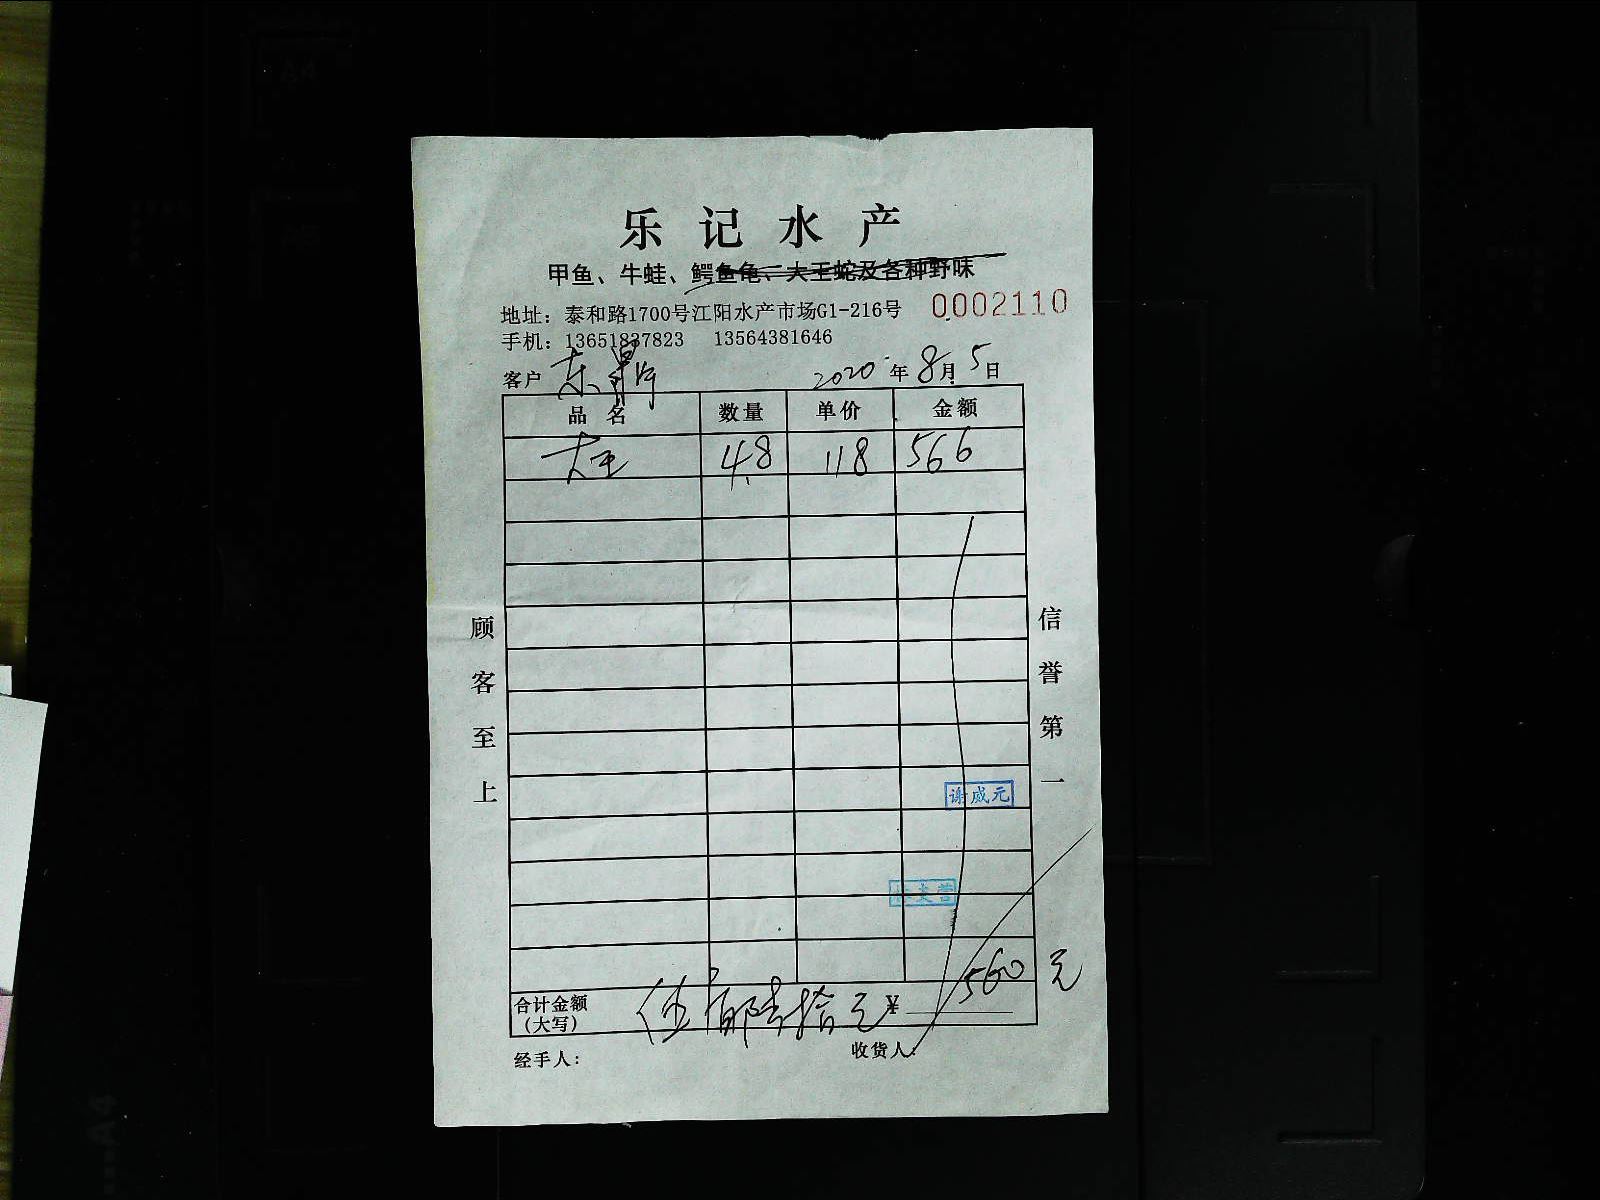 乐记水产
甲鱼、牛蛙、鳄鱼龟、大王蛇及各种野味
地址：泰和路1700号江阳水产市场G1-216号 0002110
手机：13651837823 13564381646
客户 东鼎 2020年8月5日
品名 数量 单价 金额
大王 4.8 118 566
顾客至上
信誉第一
谢威元
合计金额（大写） 伍佰陆拾元 ¥ 560元
经手人： 收货人：